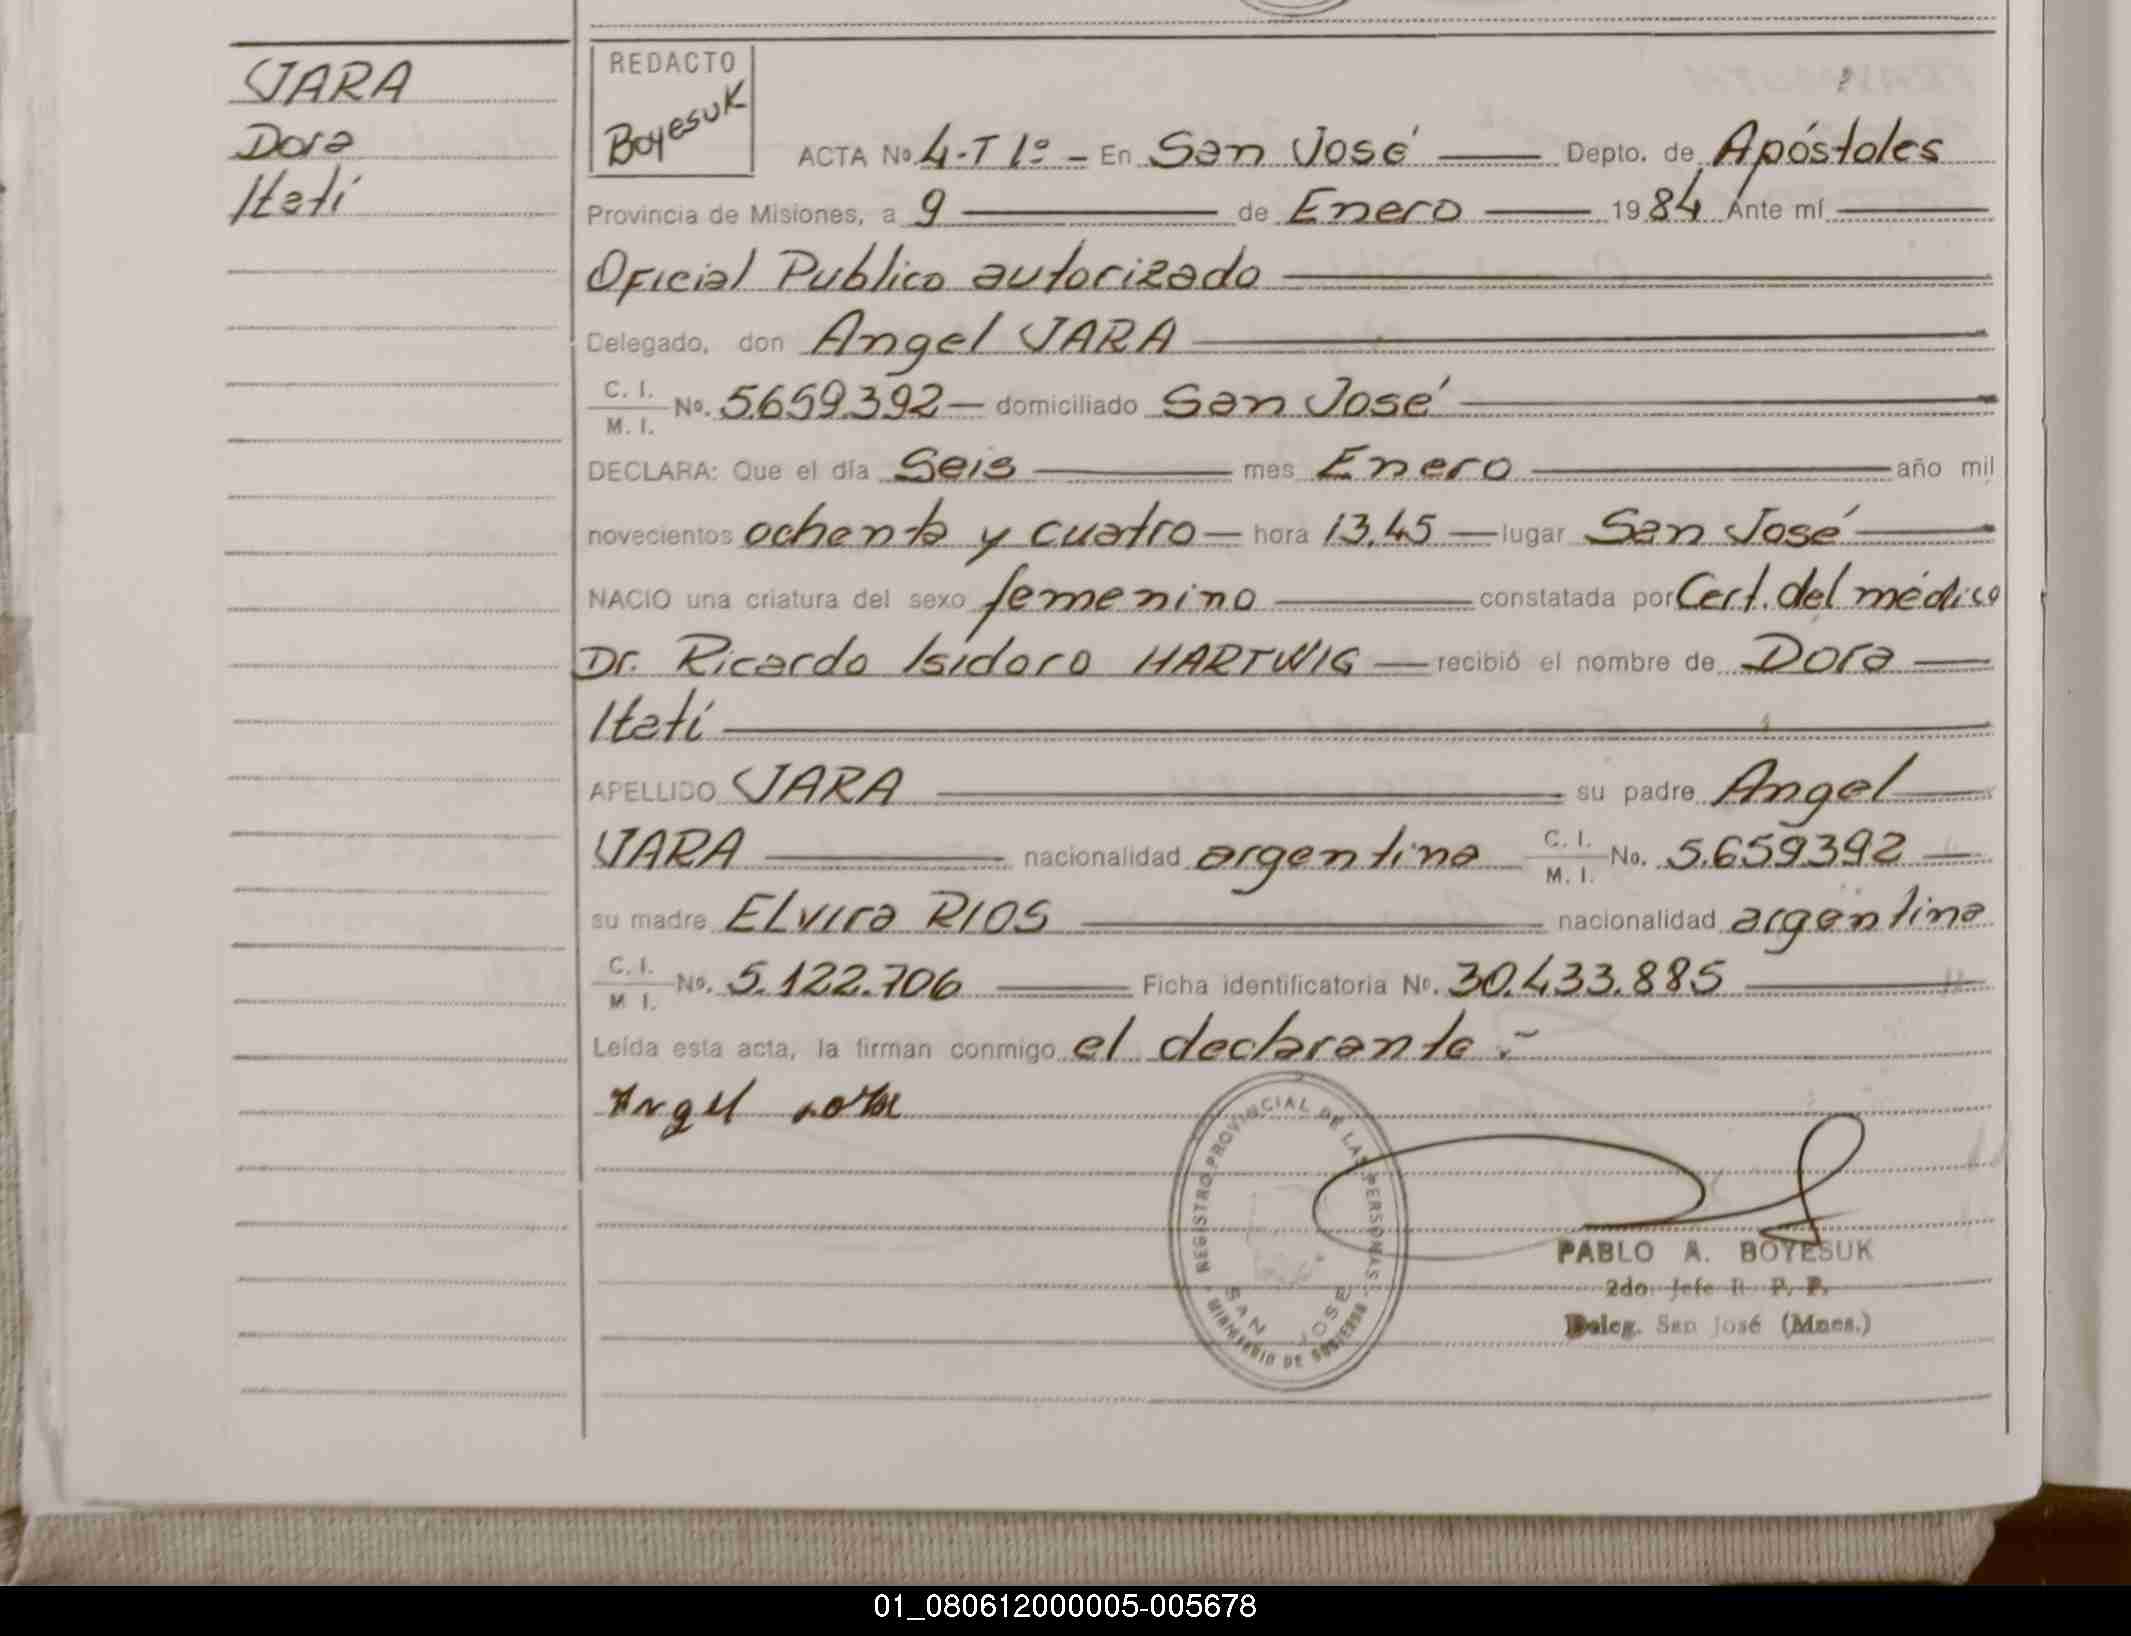 JARA
Dora
Itatí
REDACTO
Boyesuk
ACTA No. 4-T 1º - En San José Depto. de Apóstoles
Provincia de Misiones, a 9 de Enero 1984 Ante mí
Oficial Publico autorizado
Delegado, don Angel JARA
C. I.
M. I. No. 5.659.392 — domiciliado San José
DECLARA: Que el día Seis mes Enero año mil
novecientos ochenta y cuatro — hora 13,45 — lugar San José
NACIO una criatura del sexo femenino constatada por Cert. del médico
Dr. Ricardo Isidoro HARTWIG — recibió el nombre de Dora
Itatí
APELLIDO JARA su padre Angel
JARA nacionalidad argentina C. I.
M. I. No. 5.659.392 —
su madre Elvira RIOS nacionalidad argentina
C. I.
M. I. No. 5.122.706 Ficha identificatoria No. 30.433.885
Leída esta acta, la firman conmigo el declarante.-
Angel
REGISTRO PROVINCIAL DE LAS PERSONAS
SAN JOSE
MINISTERIO DE GOBIERNO
PABLO A. BOYESUK
2do. Jefe R. P. P.
Deleg. San José (Mnes.)
01_080612000005-005678